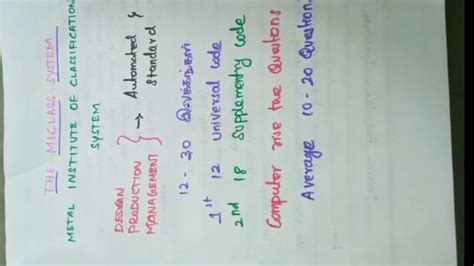 THE MICLASS SYSTEM
METAL INSTITUTE OF CLASSIFICATION
SYSTEM
DESIGN
PRODUCTION
MANAGEMENT } → Automated &
Standard
12 - 30 இலக்கங்கள்
1st 12 universal code
2nd 18 supplementry code
Computer rise the Questions
Average 10 - 20 Question.